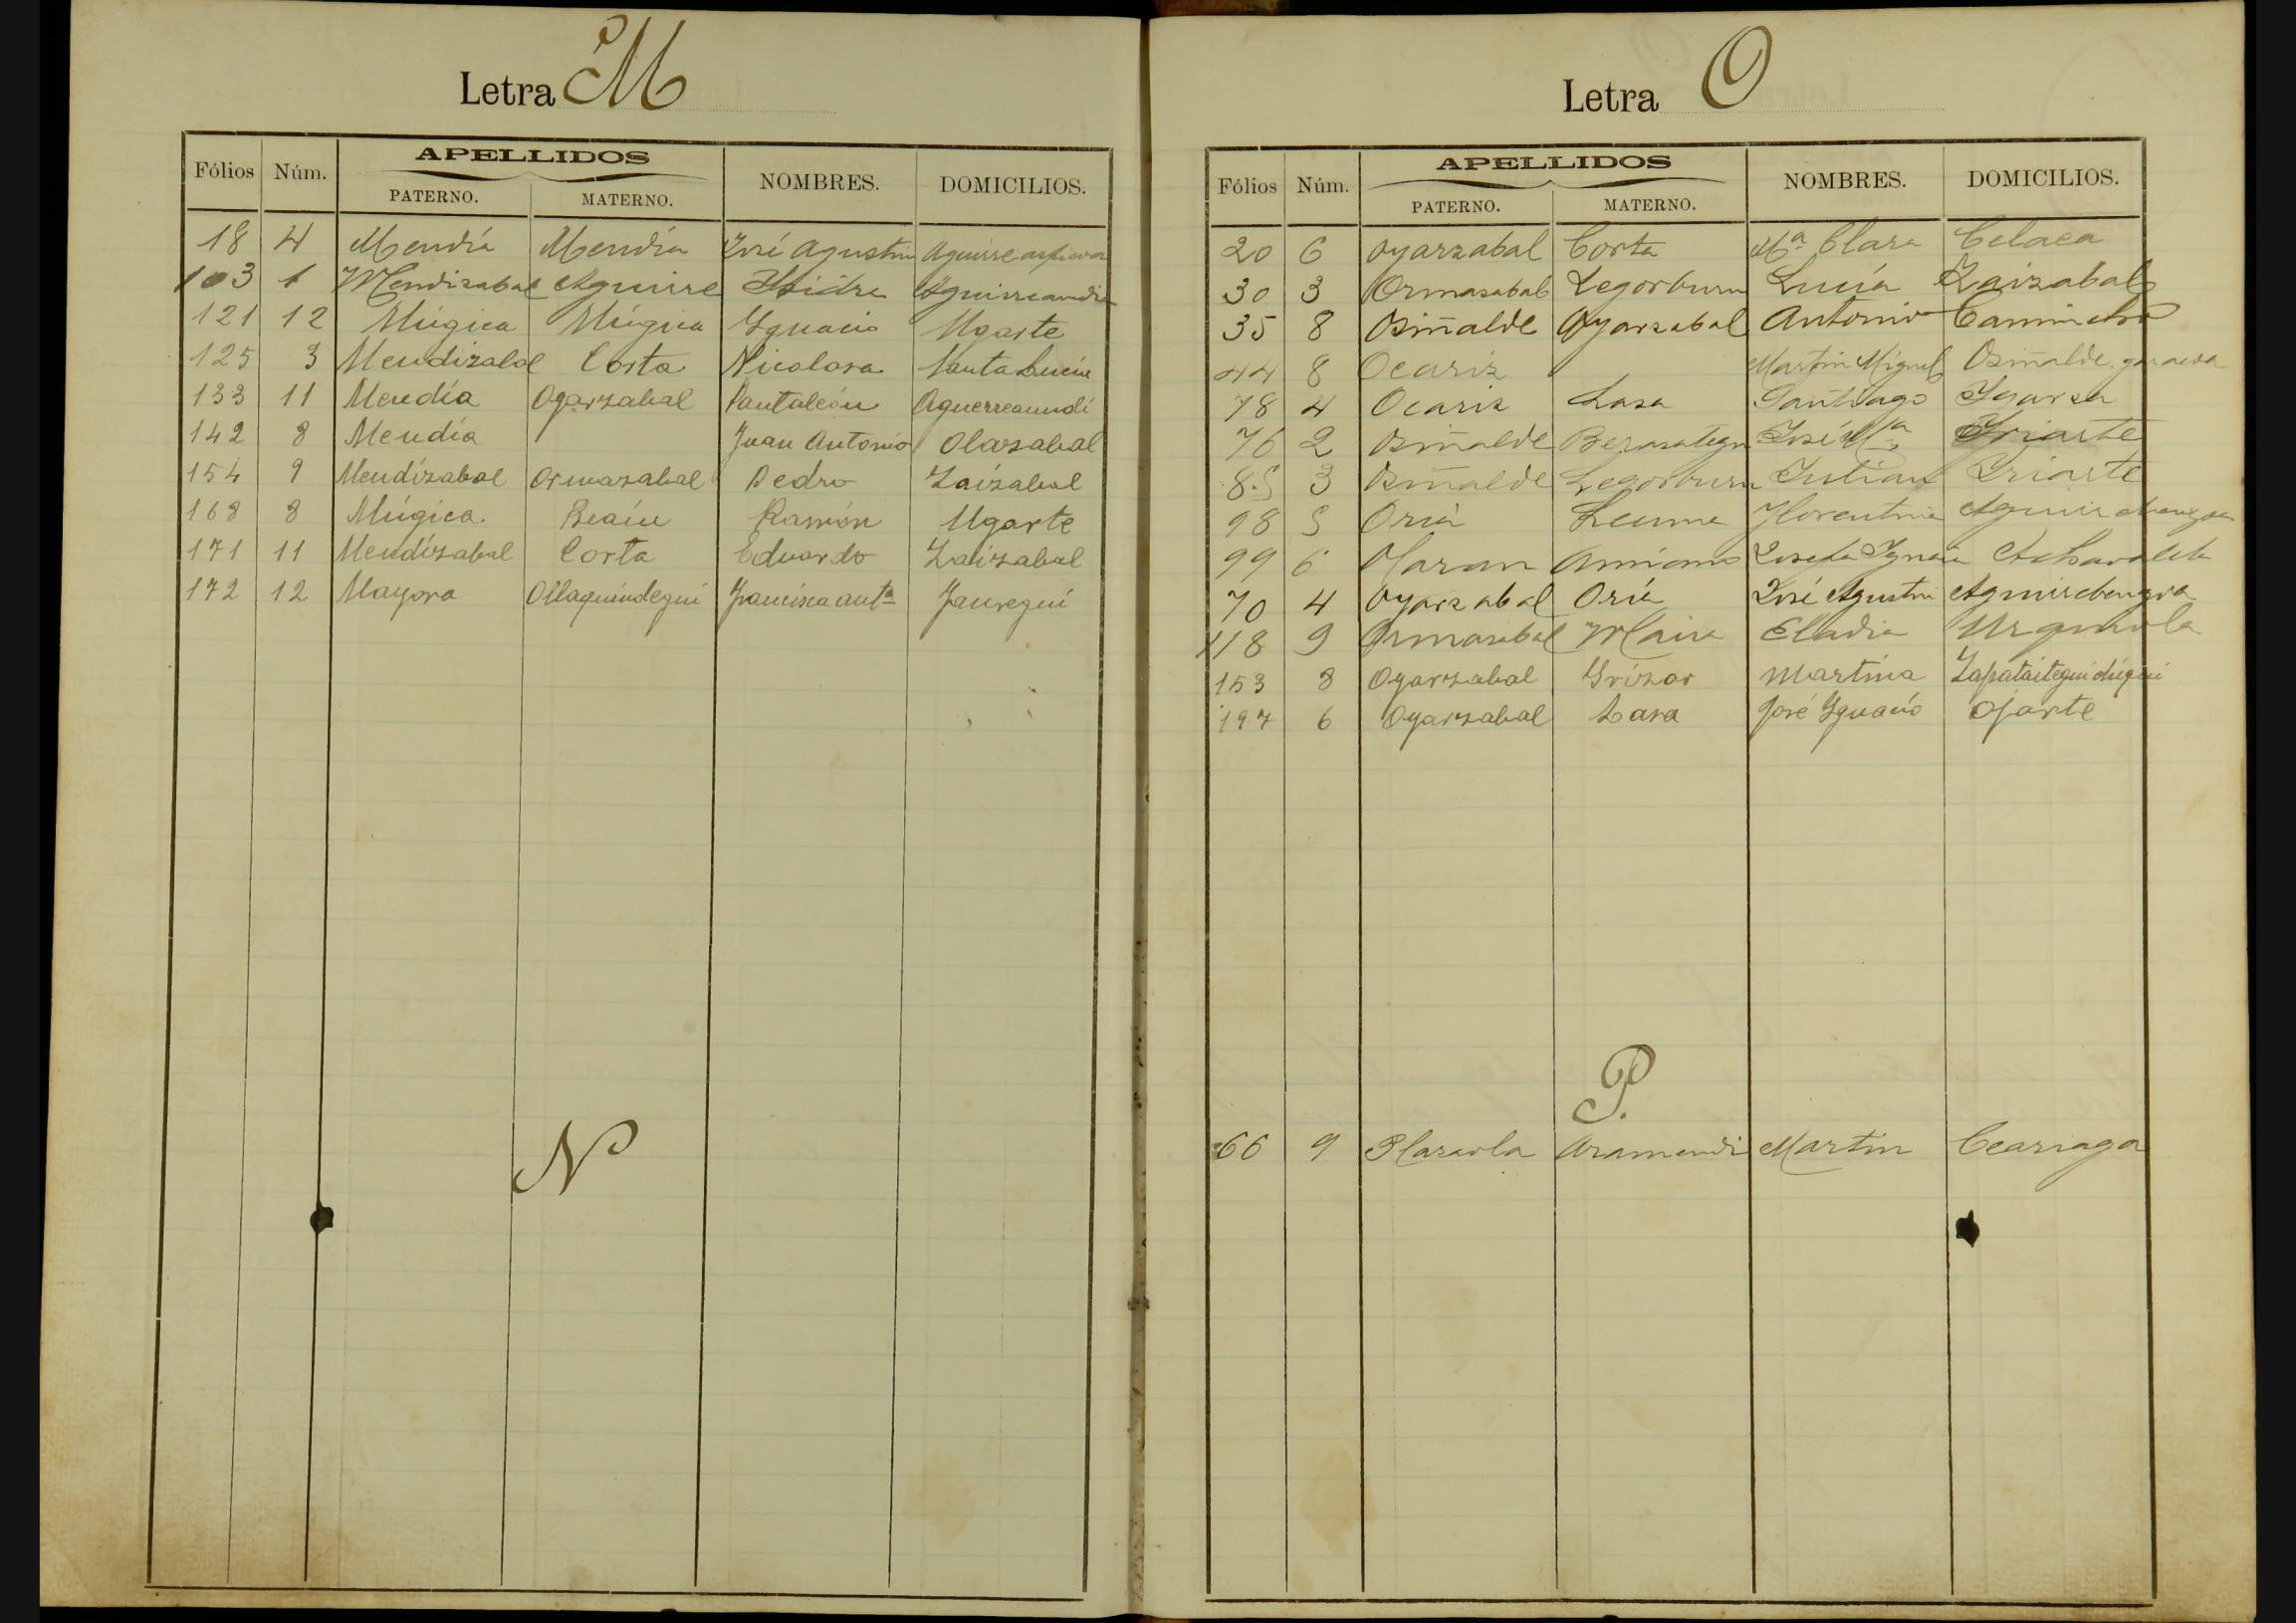 Letra M
APELLIDOS
Fólios Núm. NOMBRES. DOMICILIOS.
PATERNO. MATERNO.
18 4 Mendía Mendía José Agustin
103 1 Mendizabal Aguirre Isidra Aguirreamdia
121 12 Múgica Múgica Ygnacio Ugarte
125 3 Mendizabal Corta Nicolasa Santa Lucia
133 11 Mendía Oyarzabal Pantaleón Aguerreaundi
142 8 Mendía Juan Antonio Olazabal
154 9 Mendízabal Ormazabal Pedro Zaízabal
168 8 Múgica. Beaín Ramón Ugarte
171 11 Mendízabal Corta Eduardo Zaizabal
172 12 Mayora Ollaquindegui Francisca Antª Jauregui
N
Letra O
APELLIDOS
Fólios Núm. NOMBRES. DOMICILIOS.
PATERNO. MATERNO.
20 6 Oyarzabal Corta Mª Clara Celaca
30 3 Ormasabal Legorburu Lucía Zaizabal
35 8 Osiñalde Oyarzabal Antonio Caminero
44 8 Ocariz Martin Miguel Osiñalde garaicoa
78 4 Ocariz Lasa Santiago Igarza
76 2 Osiñalde Berasategu José Mª Iriarte
85 3 Osiñalde Legorburu Julian Iriarte
98 5 Oria Lecuna Florentina
99 6 Amiano Josefa Ygnacia
70 4 Oyarzabal Oria José Agustin Aguirebengoa
118 9 Ormasabal Maiza Eladia Urquiola
153 8 Oyarzabal Grízar Martina Zapataiteguichiqui
197 6 Oyarzabal Lasa José Ygnacio Ojarte
P.
66 9 Plazaola Aramendi Martin Ceariaga